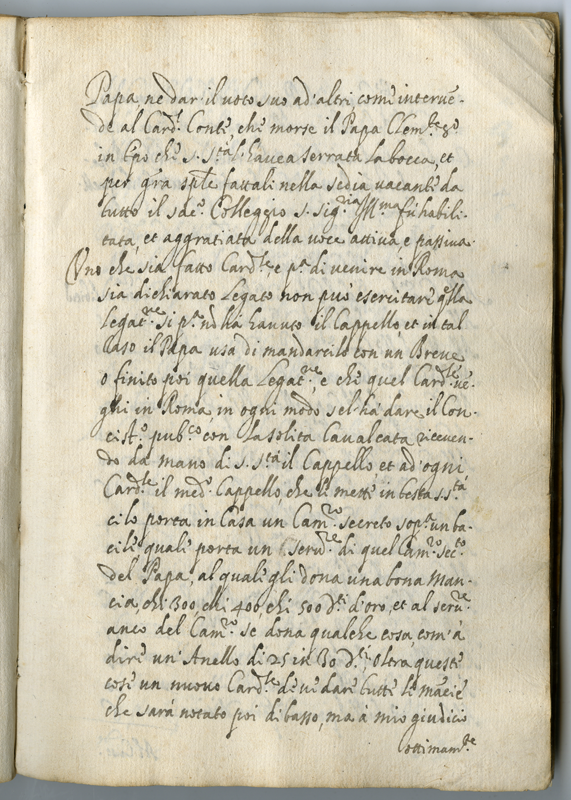 Papa, ne dar il voto suo ad altri, come interue-
de al Card.l Conti, che morse il Papa Clem.te 8.o
in tpo che S. S.tà l'hauea serrata la bocca, et
per gra sple fattali nella sedia vacante da
tutto il sac.o Colleggio S. Sig.ria Ill.ma fu habili-
tata, et aggratiata della voce attiua, e passiua.
Uno che sia fatto Card.le, e p.a di venire in Roma
sia dichiarato Legato non può esercitare qlla
Legat.ne si p.a nō ha hauuto il Cappello, et in tal
caso il Papa usa di mandarcilo con un Breue
o finito poi quella Legat.ne, e che quel Card.le ue-
ghi in Roma, in ogni modo sel ha dare il Con-
cist.o pub.co con la solita Caualcata riceuen-
do da mano di S. S.tà il Cappello et ad ogni
Card.le il med.o Cappello che li mette in testa S. S.tà
cilo porta in Casa un Cam.ro secreto sop.a un ba-
cile, quale porta un seru.re di quel Cam.ro sec.to
del Papa, al quale gli dona una bona man-
cia, chi 300, chi 400, chi 500 d.ti d'oro, et al seru.re
anco del Cam.ro se dona qualche cosa, com'a
dire un' Anello di 25 in 30 d.ti. Oltra queste
cose un nuouo Card.le di ui dare tutte le mācie
che sarà notato poi di basso, ma à mio giudicio
ottimam.te